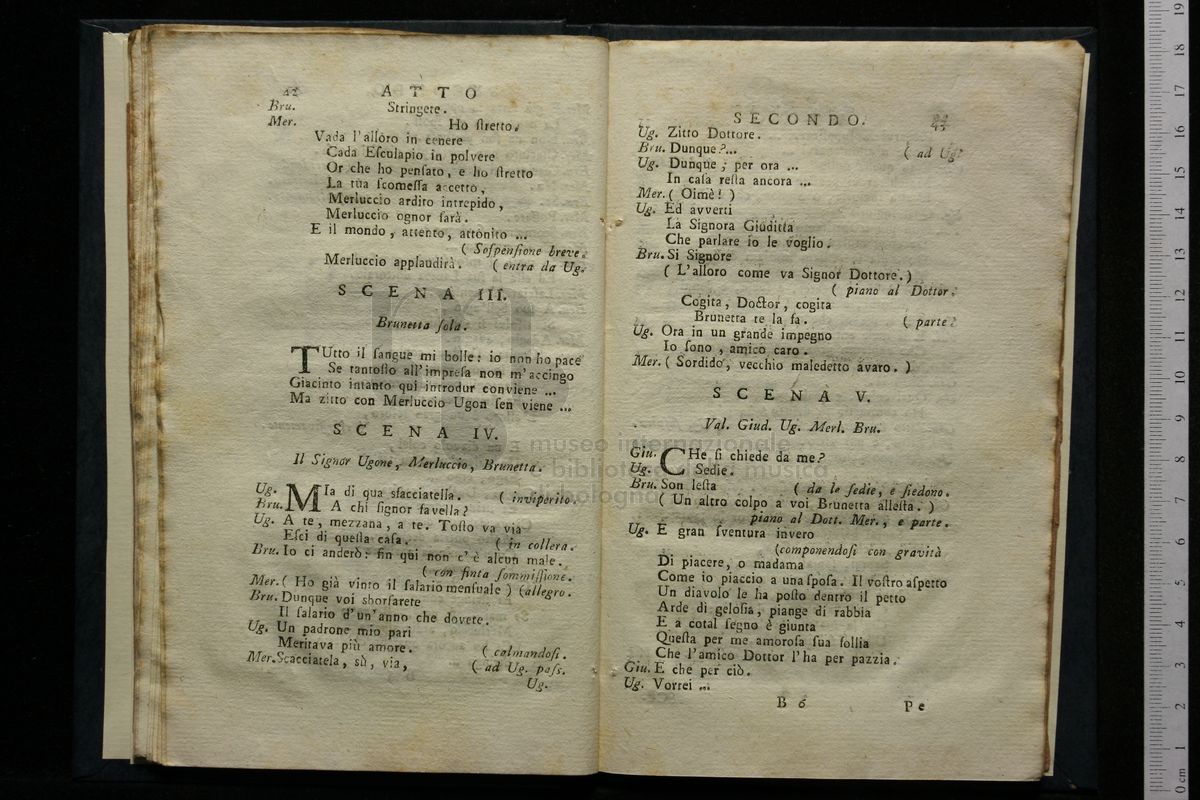 42 ATTO
Bru. Stringete.
Mer. Ho ſtretto.
Vada l'alloro in cenere
Cada Eſculapio in polvere
Or che ho penſato, e ho ſtretto
La tua ſcomeſſa accetto,
Merluccio ardito intrepido,
Merluccio ognor ſarà.
E il mondo, attento, attonito ...
( Soſpenſione breve.
Merluccio applaudirà. ( entra da Ug.
SCENA III.
Brunetta ſola.
TUtto il ſangue mi bolle: io non ho pace
Se tantoſto all'impreſa non m'accingo
Giacinto intanto qui introdur conviene ...
Ma zitto con Merluccio Ugon ſen viene ...
SCENA IV.
Il Signor Ugone, Merluccio, Brunetta.
Ug. MIa di qua sfacciatella. ( inviperito.
Bru. A chi ſignor favella?
Ug. A te, mezzana, a te. Toſto va via
Eſci di queſta caſa. ( in collera.
Bru. Io ci anderò: fin qui non c'è alcun male.
( con finta ſommiſſione.
Mer. ( Ho già vinto il ſalario menſuale ) (allegro.
Bru. Dunque voi sborſarete
Il ſalario d'un'anno che dovete.
Ug. Un padrone mio pari
Meritava più amore. ( calmandoſi.
Mer. Scacciatela, sù, via, ( ad Ug. paſs.
Ug.
SECONDO.
Ug. Zitto Dottore.
Bru. Dunque?... ( ad Ug.
Ug. Dunque; per ora ...
In caſa reſta ancora ...
Mer. ( Oimè! )
Ug. Ed avverti
La Signora Giuditta
Che parlare io le voglio.
Bru. Si Signore
( L'alloro come va Signor Dottore. )
( piano al Dottor.
Cogita, Doctor, cogita
Brunetta te la fa. ( parte.
Ug. Ora in un grande impegno
Io ſono, amico caro.
Mer. ( Sordido, vecchio maledetto avaro. )
SCENA V.
Val. Giud. Ug. Merl. Bru.
Giu. CHe ſi chiede da me?
Ug. Sedie.
Bru. Son leſta ( da le ſedie, e ſiedono.
( Un altro colpo a voi Brunetta alleſta. )
piano al Dott. Mer., e parte.
Ug. E gran ſventura invero
(componendoſi con gravità
Di piacere, o madama
Come io piaccio a una ſpoſa. Il voſtro aſpetto
Un diavolo le ha poſto dentro il petto
Arde di geloſia, piange di rabbia
E a cotal ſegno è giunta
Queſta per me amoroſa ſua follia
Che l'amico Dottor l'ha per pazzia.
Giu. E che per ciò.
Ug. Vorrei ...
B 6 Pe
museo internazionale
biblioteca della musica
bologna
0 cm 1 2 3 4 5 6 7 8 9 10 11 12 13 14 15 16 17 18 19